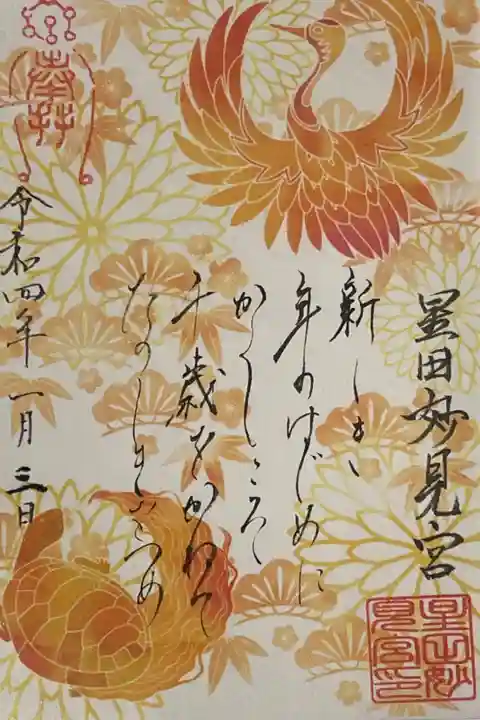 星田妙見宮
星田妙見宮印
新しき
年のはじめに
かくしこそ
千歳をかねて
たのしきをつめ
奉拝
令和四年一月三日